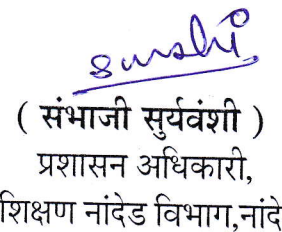 ( संभाजी सुर्यवंशी )
प्रशासन अधिकारी,
शिक्षण नांदेड विभाग,नांदे